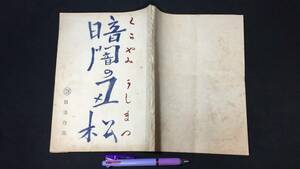 くらやみ うしまつ
暗闇の丑松